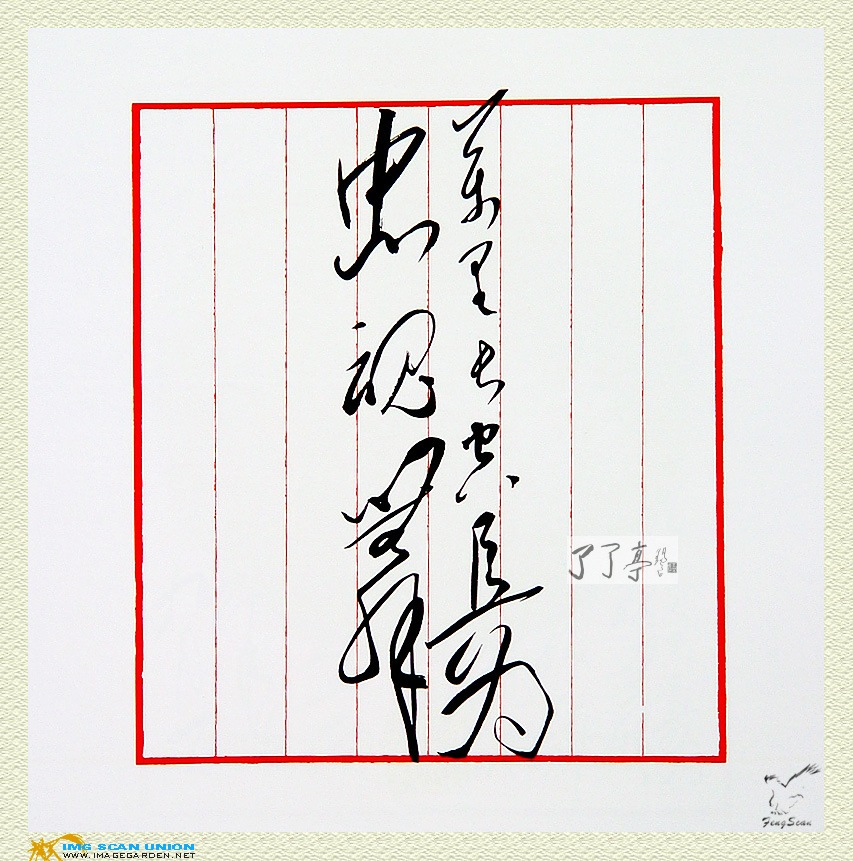 萬里长空且为
忠魂舞
了了亭
FengScan
IMG SCAN UNION
WWW.IMAGEGARDEN.NET